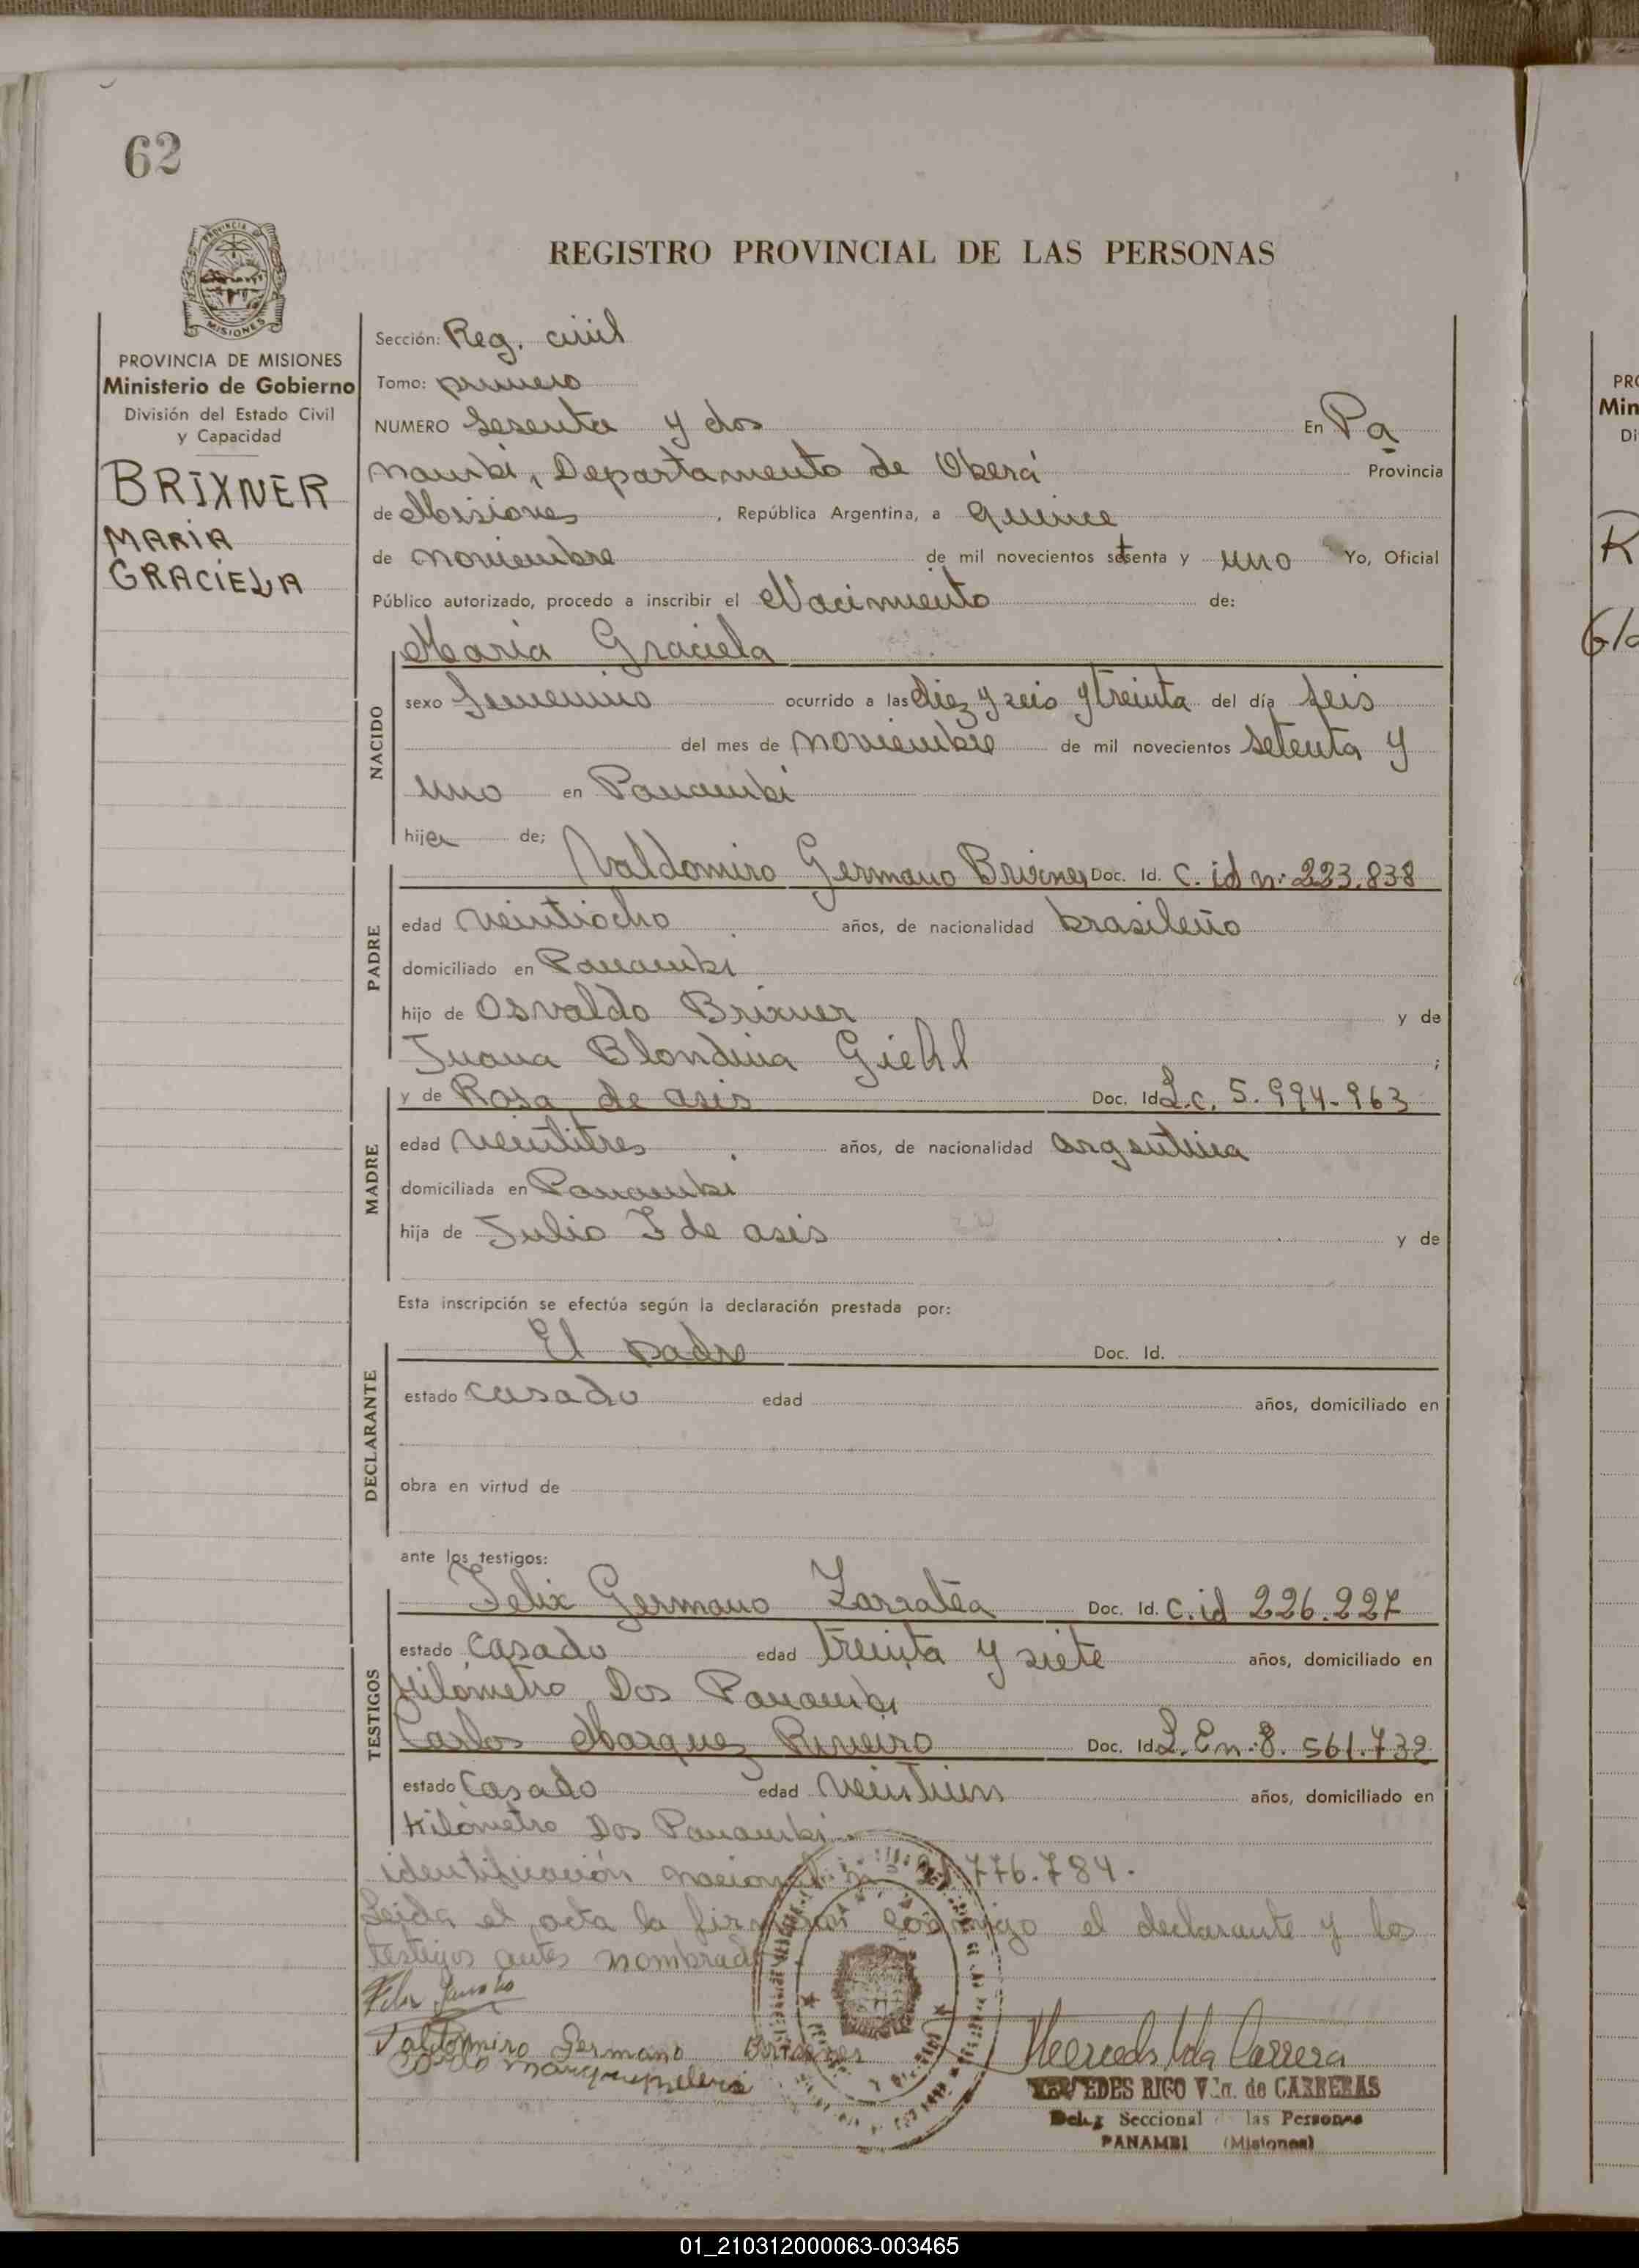 62
REGISTRO PROVINCIAL DE LAS PERSONAS
PROVINCIA DE
MISIONES
PROVINCIA DE MISIONES
Ministerio de Gobierno
División del Estado Civil
y Capacidad
BRIXNER
MARIA
GRACIELA
Sección: Reg. civil
Tomo: primero
NUMERO Sesenta y dos En Pa
nambi, Departamento de Oberá Provincia
de Misiones, República Argentina, a quince
de noviembre de mil novecientos setenta y uno Yo, Oficial
Público autorizado, procedo a inscribir el Nacimiento de:
Maria Graciela
NACIDO
sexo femenino ocurrido a las diez y seis y treinta del día seis
del mes de noviembre de mil novecientos setenta y
uno en Panambi
hija de;
PADRE
Valdomiro Germano Brixner Doc. Id. C. id n: 223.838
edad veintiocho años, de nacionalidad brasileño
domiciliado en Panambi
hijo de Osvaldo Brixner y de
Juana Blondina Giehl ;
MADRE
y de Rosa de asis Doc. Id. L.c. 5.994.963
edad veintitres años, de nacionalidad argentina
domiciliada en Panambi
hija de Julio F de asis y de
Esta inscripción se efectúa según la declaración prestada por:
DECLARANTE
El padre Doc. Id.
estado casado edad años, domiciliado en
obra en virtud de
ante los testigos:
TESTIGOS
Felix Germano Zarratea Doc. Id. C.id 226.227
estado casado edad treinta y siete años, domiciliado en
Kilómetro Dos Panambi
Carlos Marques Riveiro Doc. Id. L. En: 8.561.732
estado casado edad veintiun años, domiciliado en
Kilómetro Dos Panambi
identificación nacional n 776.784.
Leida el acta la firman conmigo el declarante y los
testigos antes nombrad
Valdomiro Germano Brixner
MERCEDES RIGO Vda. de CARRERAS
Deleg Seccional de las Personas
PANAMBI (Misiones)
PRO
Min
Di
R
Gla
01_210312000063-003465